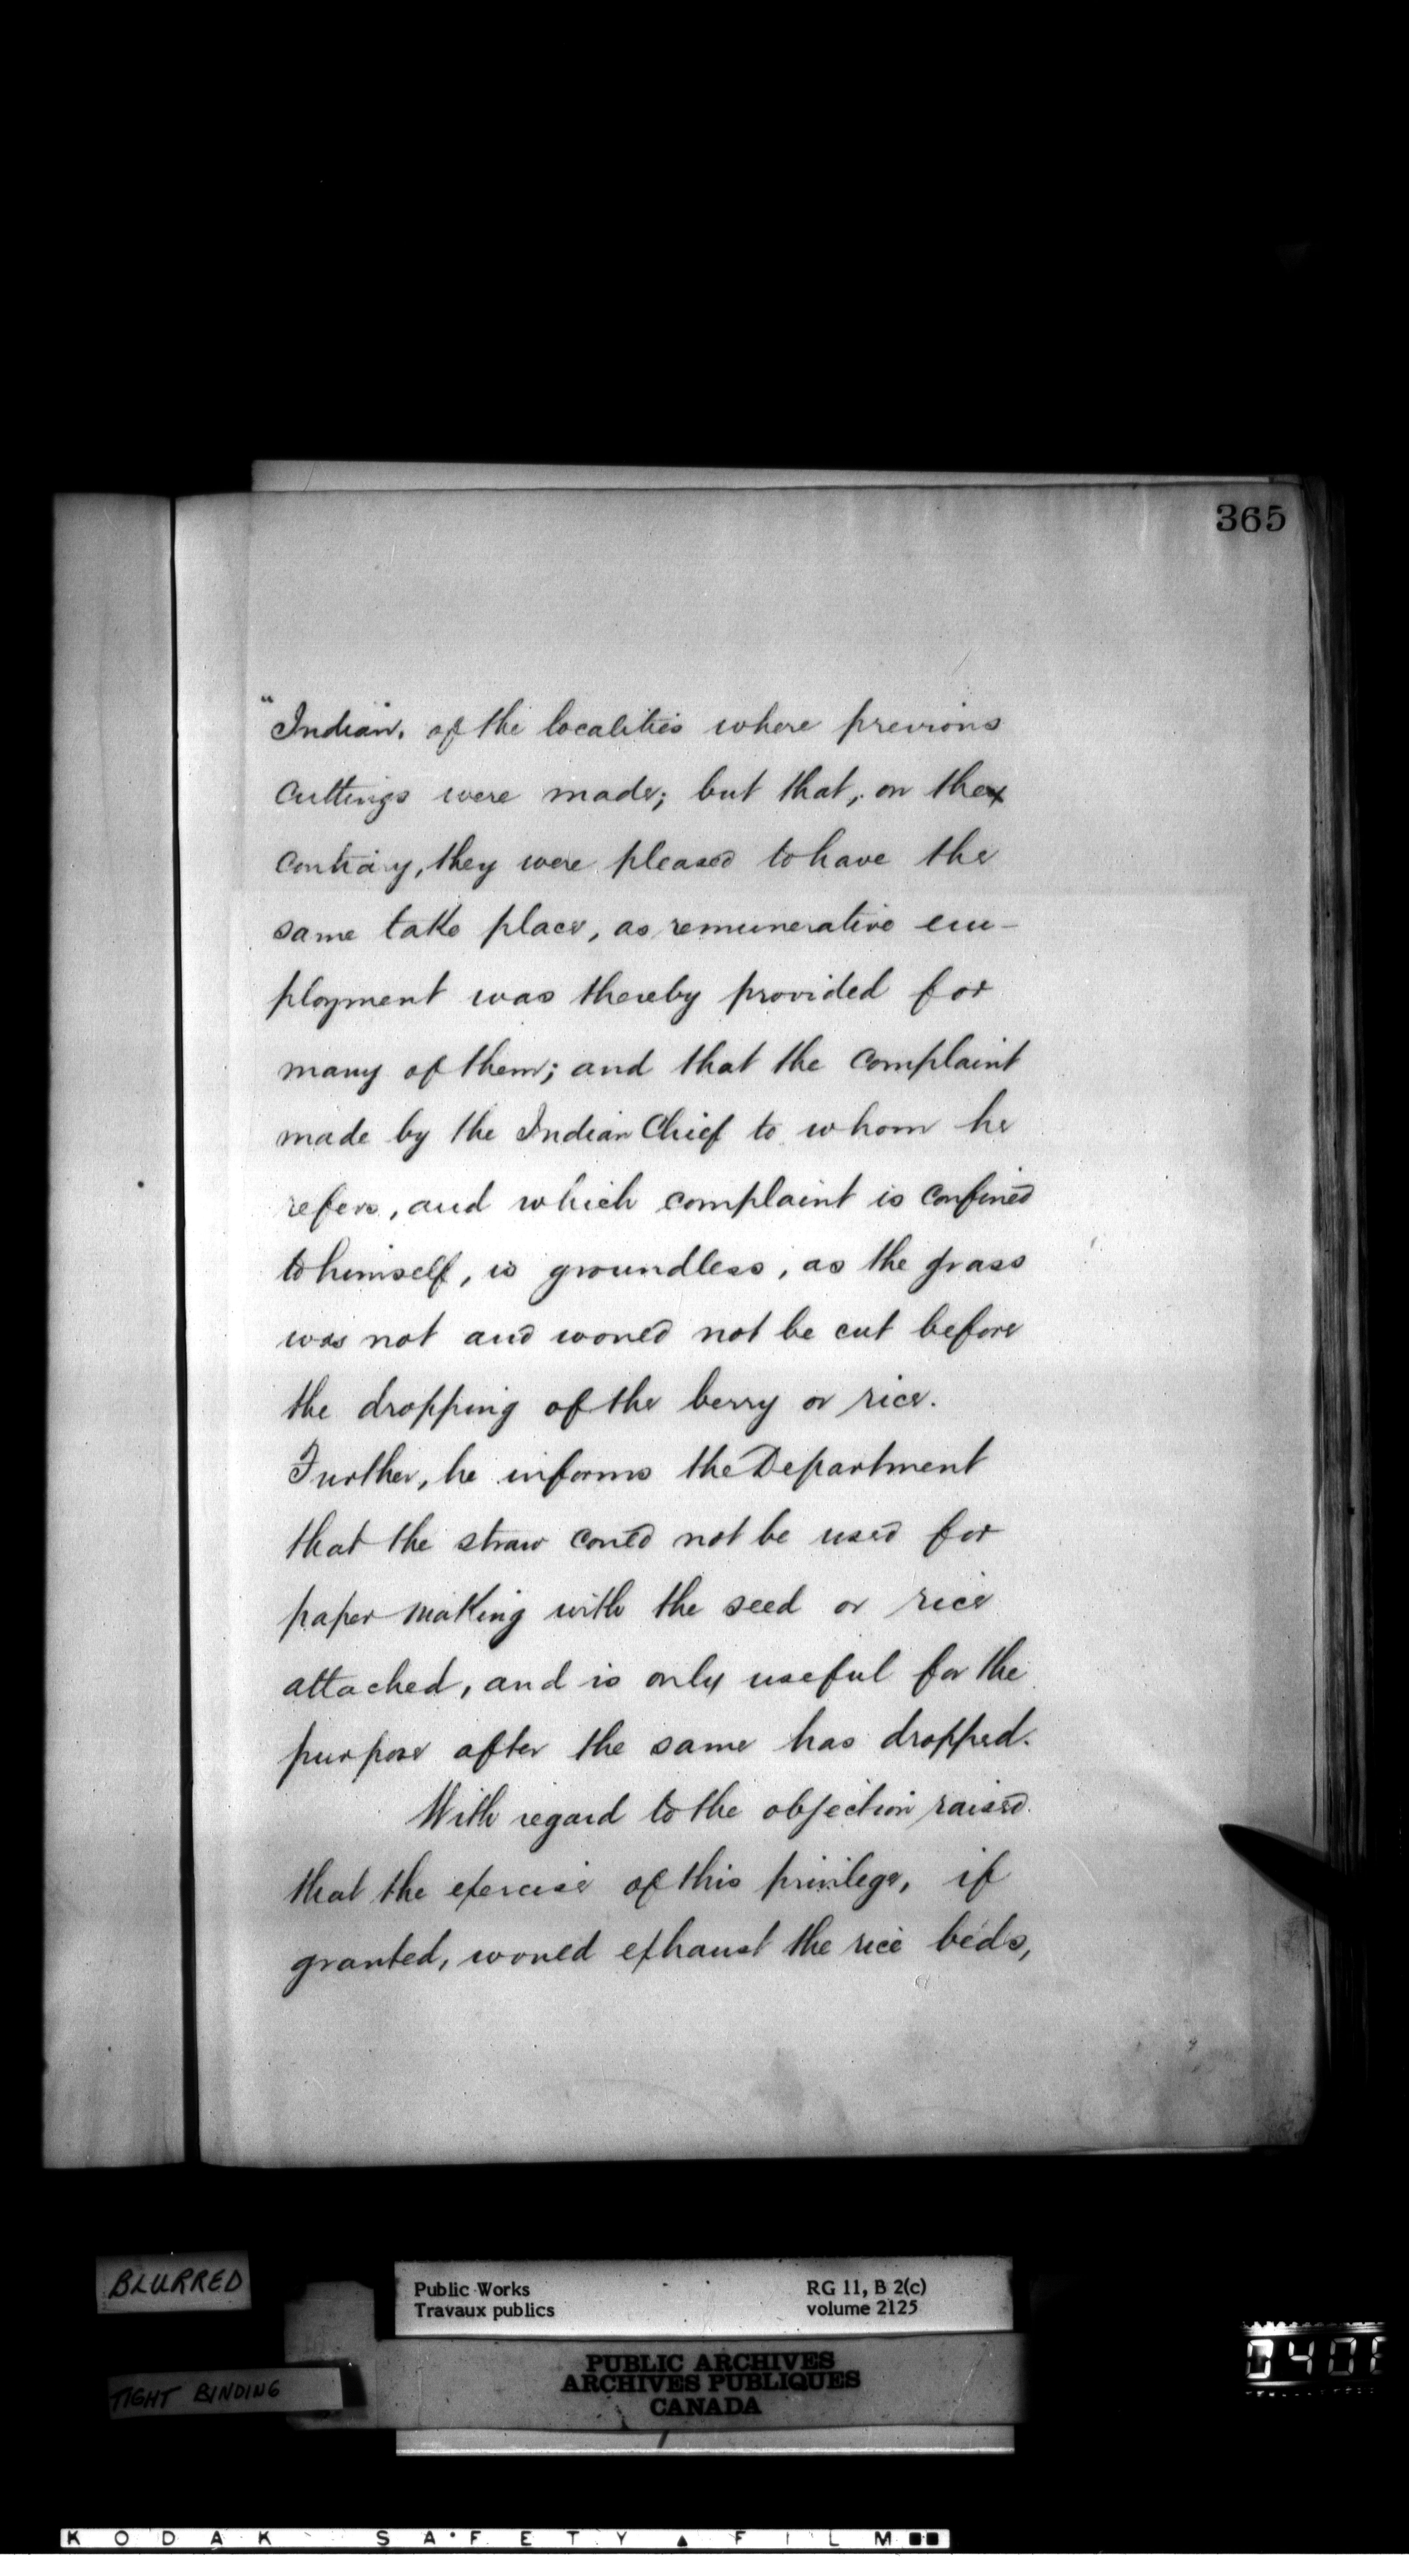 365
"Indian, of the localities where previous
cuttings were made; but that, on the
contrary, they were pleased to have the
same take place, as remunerative em-
ployment was thereby provided for
many of them; and that the complaint
made by the Indian Chief to whom he
refers, and which complaint is confined
to himself, is groundless, as the grass
was not and would not be cut before
the dropping of the berry or rice.
Further, he informs the Department
that the straw could not be used for
paper making with the seed or rice
attached, and is only useful for the
purpose after the same has dropped.
With regard to the objection raised
that the exercise of this privilege, if
granted, would exhaust the rice beds,
BLURRED
TIGHT BINDING
Public Works RG 11, B 2(c)
Travaux publics volume 2125
PUBLIC ARCHIVES
ARCHIVES PUBLIQUES
CANADA
KODAK SAFETY FILM